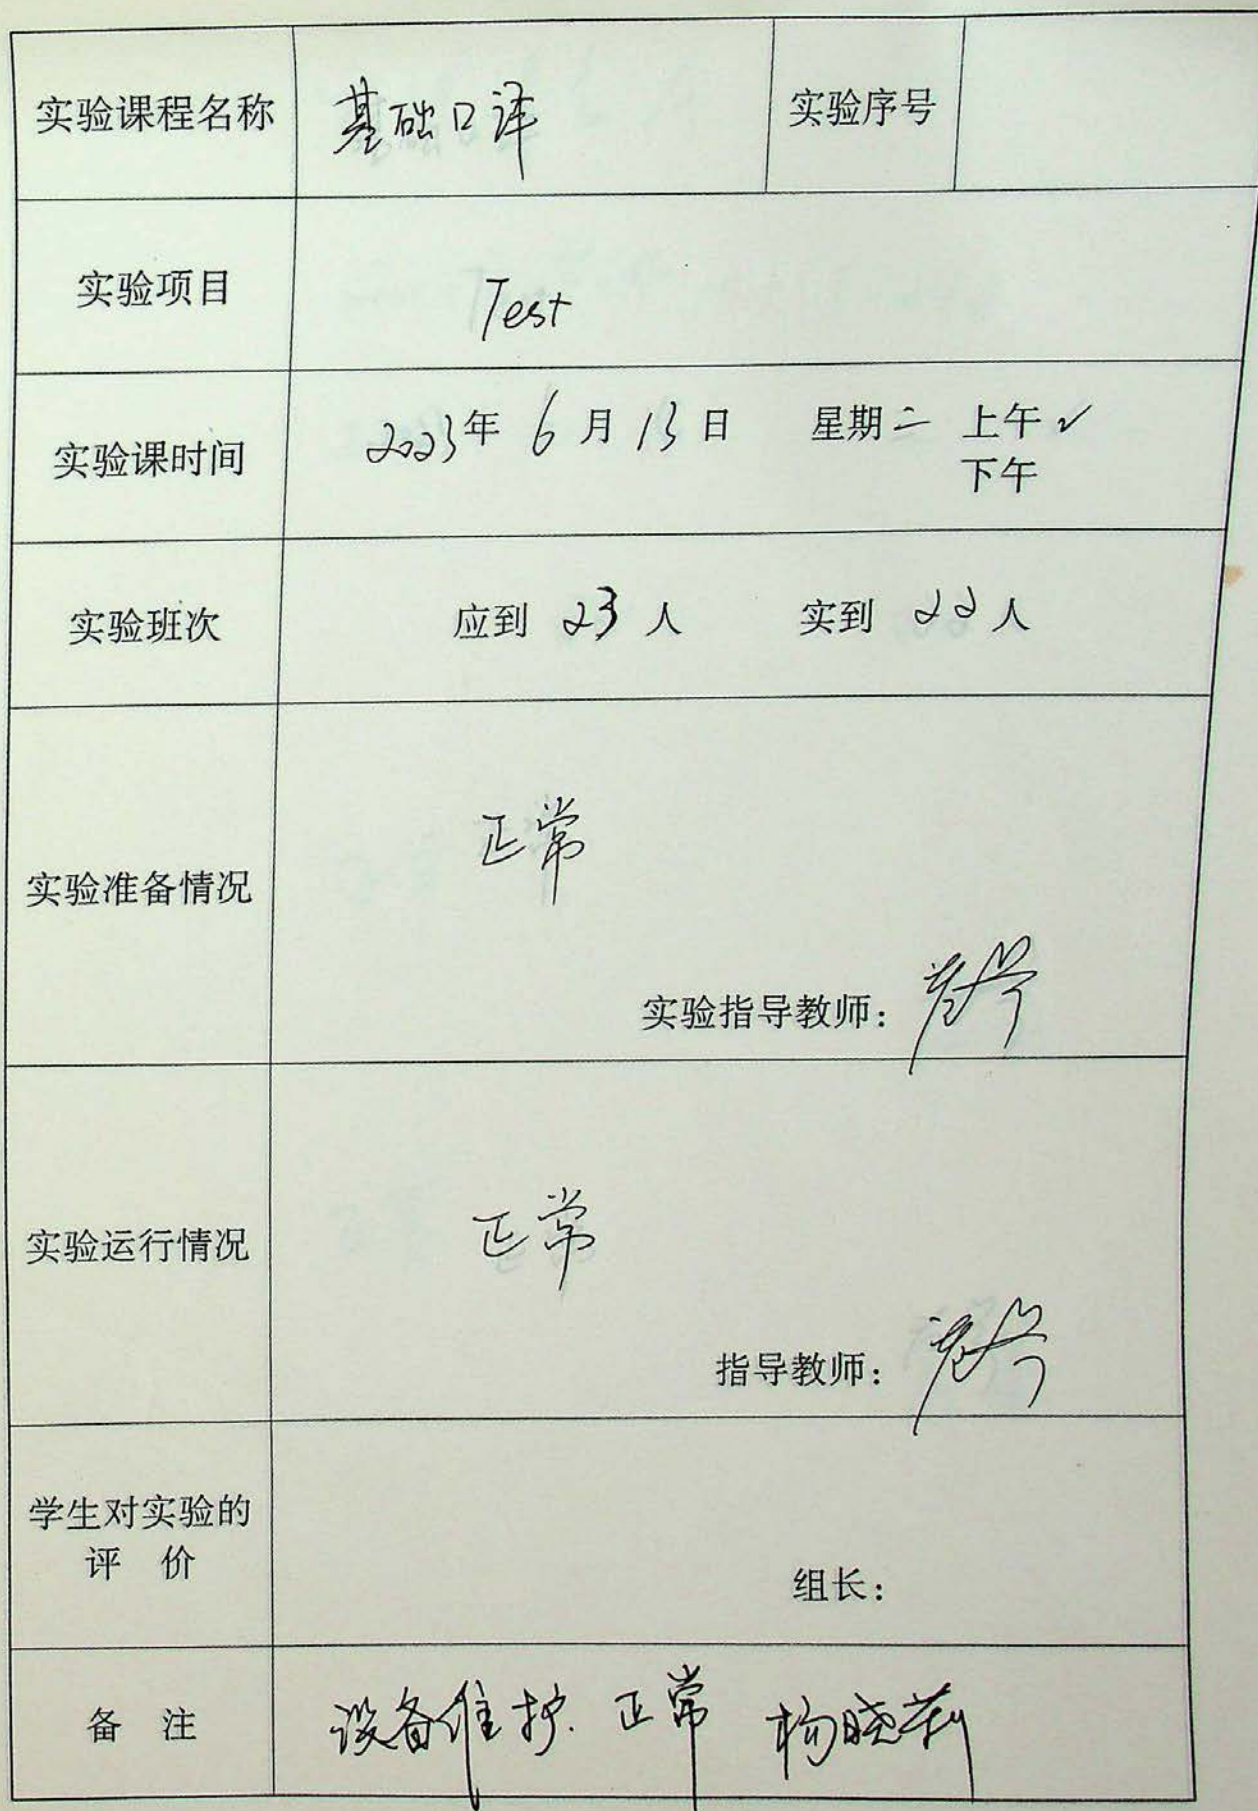 实验课程名称 基础口译 实验序号
实验项目 Test
实验课时间 2023年 6月13日 星期二 上午✓
下午
实验班次 应到 23 人 实到 22 人
正常
实验准备情况
实验指导教师：
正常
实验运行情况
指导教师：
学生对实验的
评 价
组长：
备 注 设备维护.正常 杨晓莉